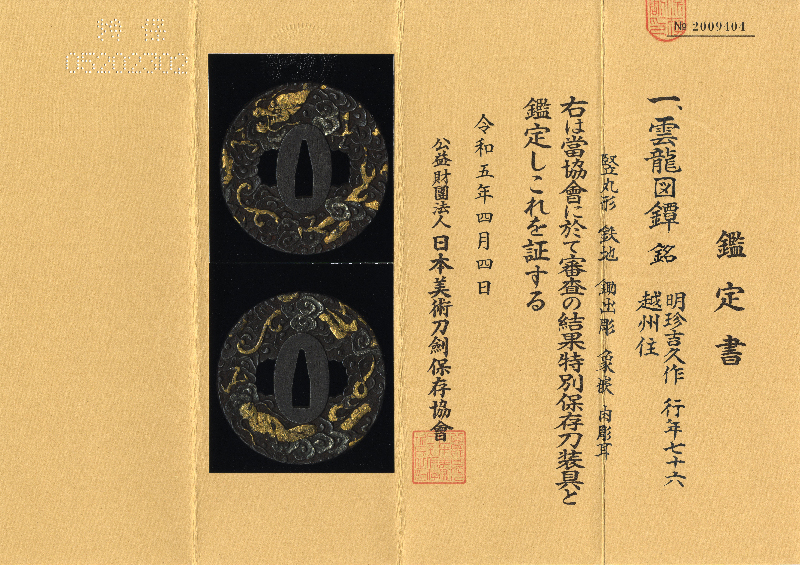 № 2009404
鑑定書
一、雲龍図鐔 銘 明珍吉久作 行年七十六
越州住
竪丸形 鉄地 鋤出彫 象嵌 肉彫耳
右は當協會に於て審査の結果特別保存刀装具と
鑑定しこれを証する
令和五年四月四日
公益財團法人 日本美術刀劍保存協會
05202302